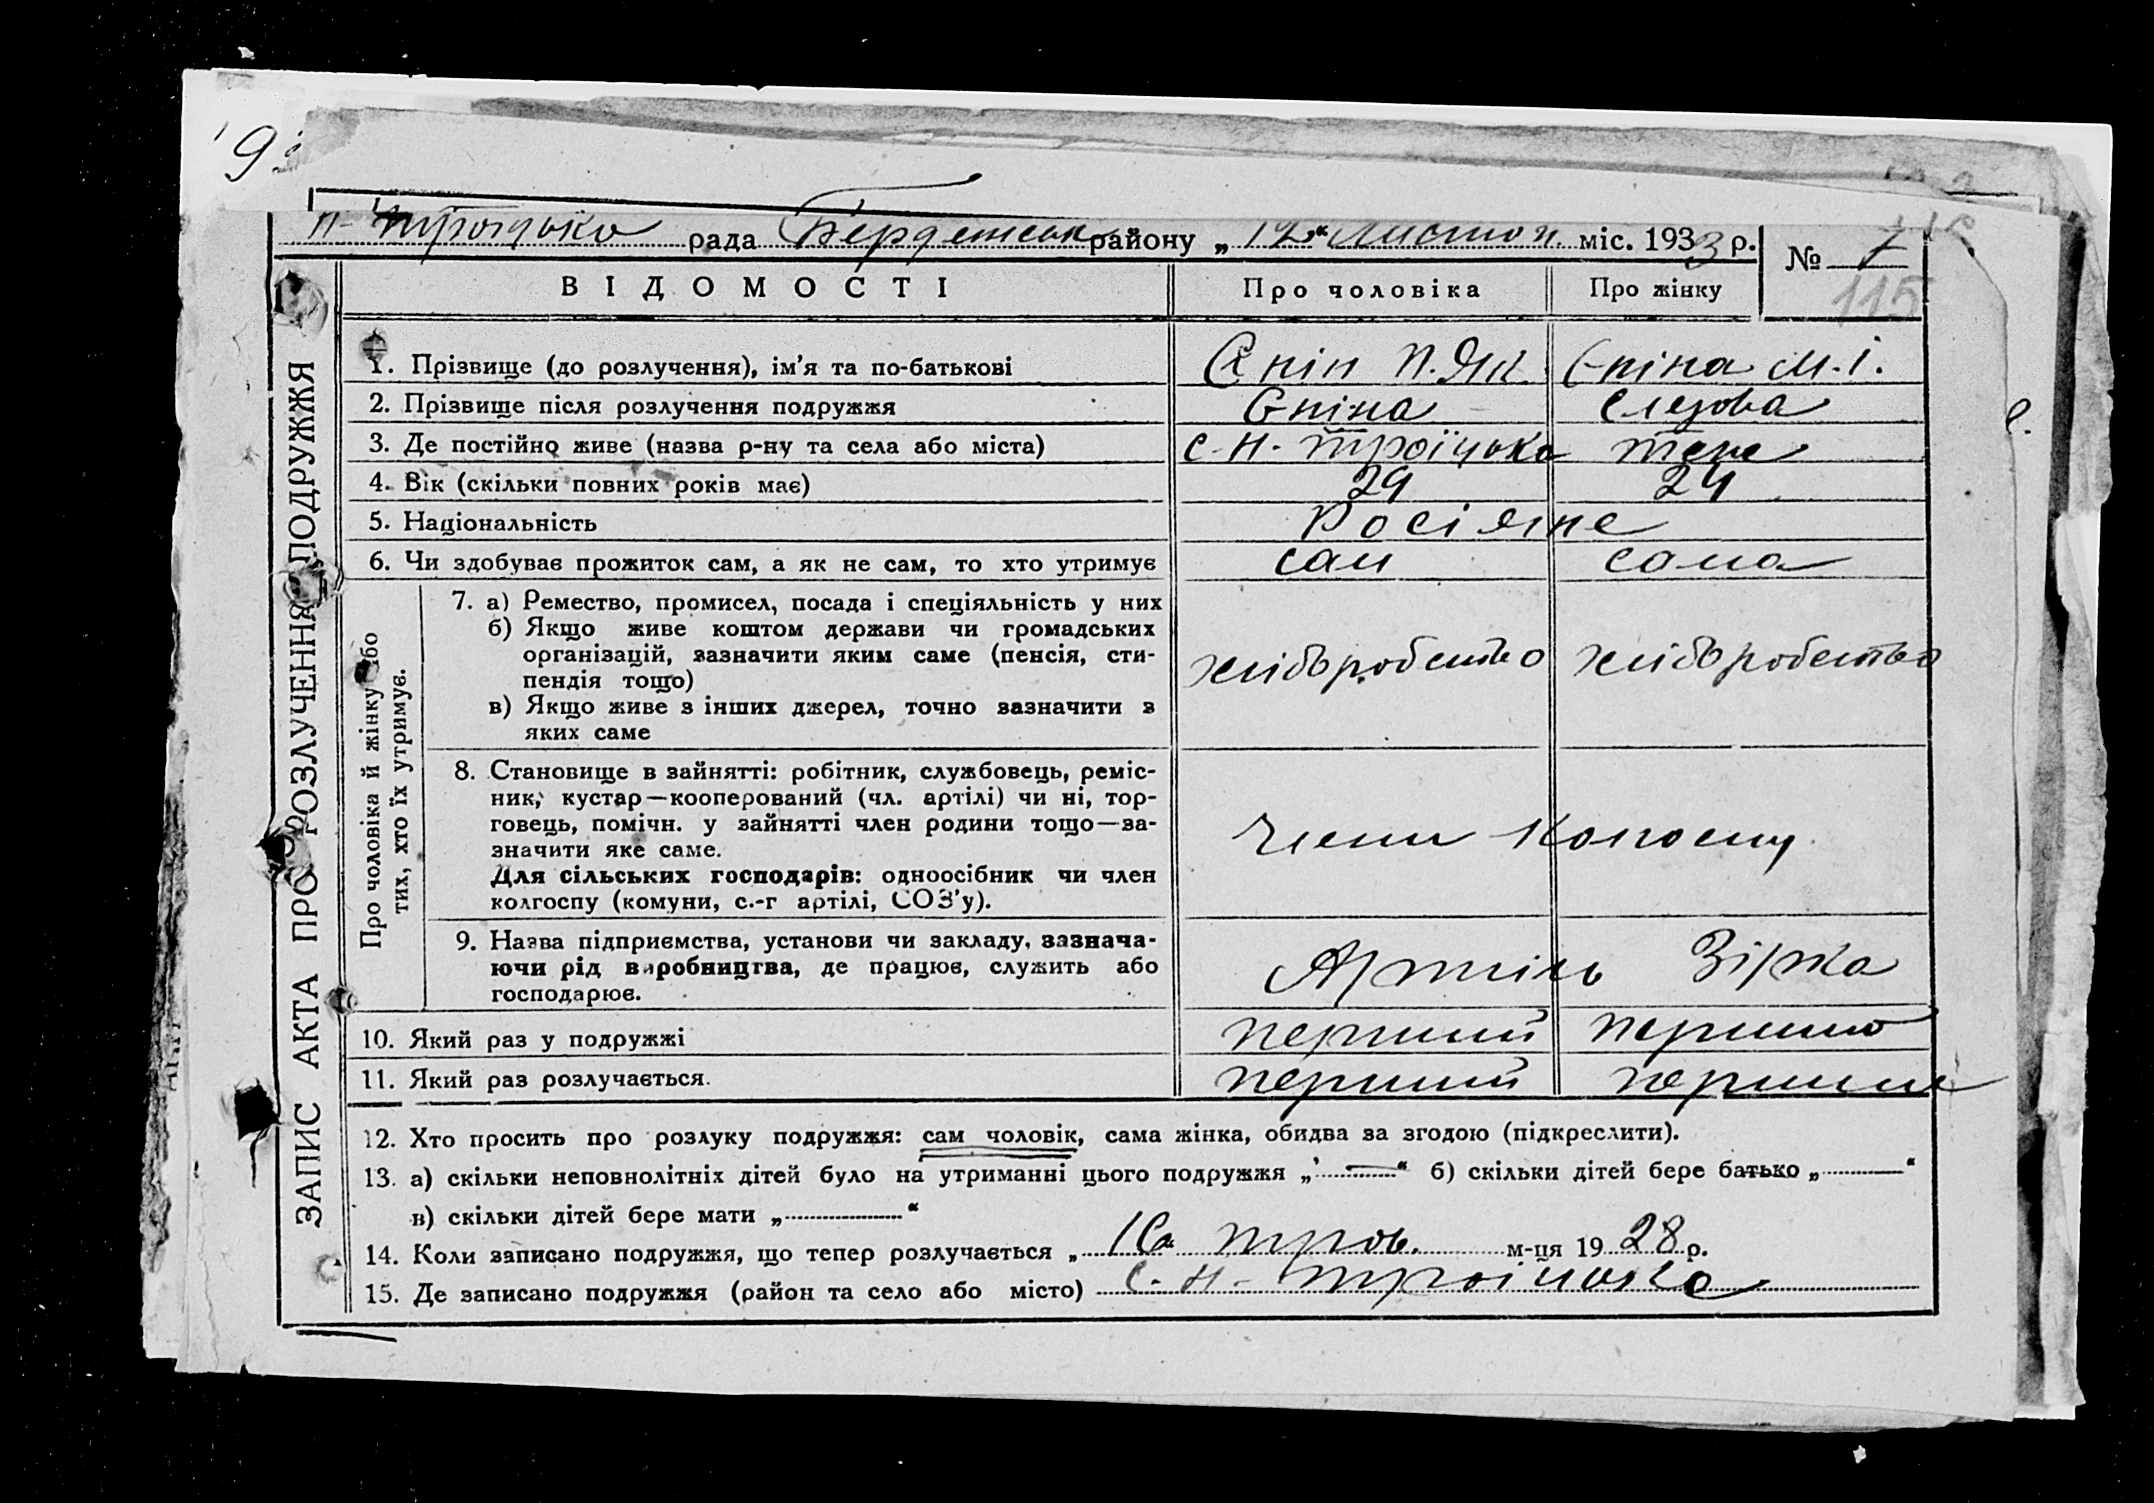 Н-Троїцька рада Бердянськ району „12“ листоп. міс. 1933 р.
№ 7
115
ВІДОМОСТІ Про чоловіка Про жінку
ЗАПИС АКТА ПРО РОЗЛУЧЕННЯ ПОДРУЖЖЯ
1. Прізвище (до розлучення), ім’я та по-батькові Єпін П. Як. Єпіна М. І.
2. Прізвище після розлучення подружжя Єпіна Єлезова
3. Де постійно живе (назва р-ну та села або міста) с-Н-Троїцька теж
4. Вік (скільки повних років має) 29 24
5. Національність Росіяне
6. Чи здобуває прожиток сам, а як не сам, то хто утримує сам сама
Про чоловіка й жінку або
тих, хто їх утримує.
7. а) Ремество, промисел, посада і спеціяльність у них
б) Якщо живе коштом держави чи громадських
організацій, зазначити яким саме (пенсія, сти-
пендія тощо) хліборобство хліборобство
в) Якщо живе з інших джерел, точно зазначити з
яких саме
8. Становище в зайнятті: робітник, службовець, реміс-
ник, кустар—кооперований (чл. артілі) чи ні, тор-
говець, помічн. у зайнятті член родини тощо—за-
значити яке саме. члени колгоспу
Для сільських господарів: одноосібник чи член
колгоспу (комуни, с.-г артілі, СОЗ’у).
9. Назва підприємства, установи чи закладу, зазнача-
ючи рід виробництва, де працює, служить або Артіль Зірка
господарює.
10. Який раз у подружжі перший перший
11. Який раз розлучається. перший перший
12. Хто просить про розлуку подружжя: сам чоловік, сама жінка, обидва за згодою (підкреслити).
13. а) скільки неповнолітніх дітей було на утриманні цього подружжя „—“ б) скільки дітей бере батько „“
в) скільки дітей бере мати „“
14. Коли записано подружжя, що тепер розлучається „ м-ця 1928 р.
15. Де записано подружжя (район та село або місто) с-Н-Троїцька